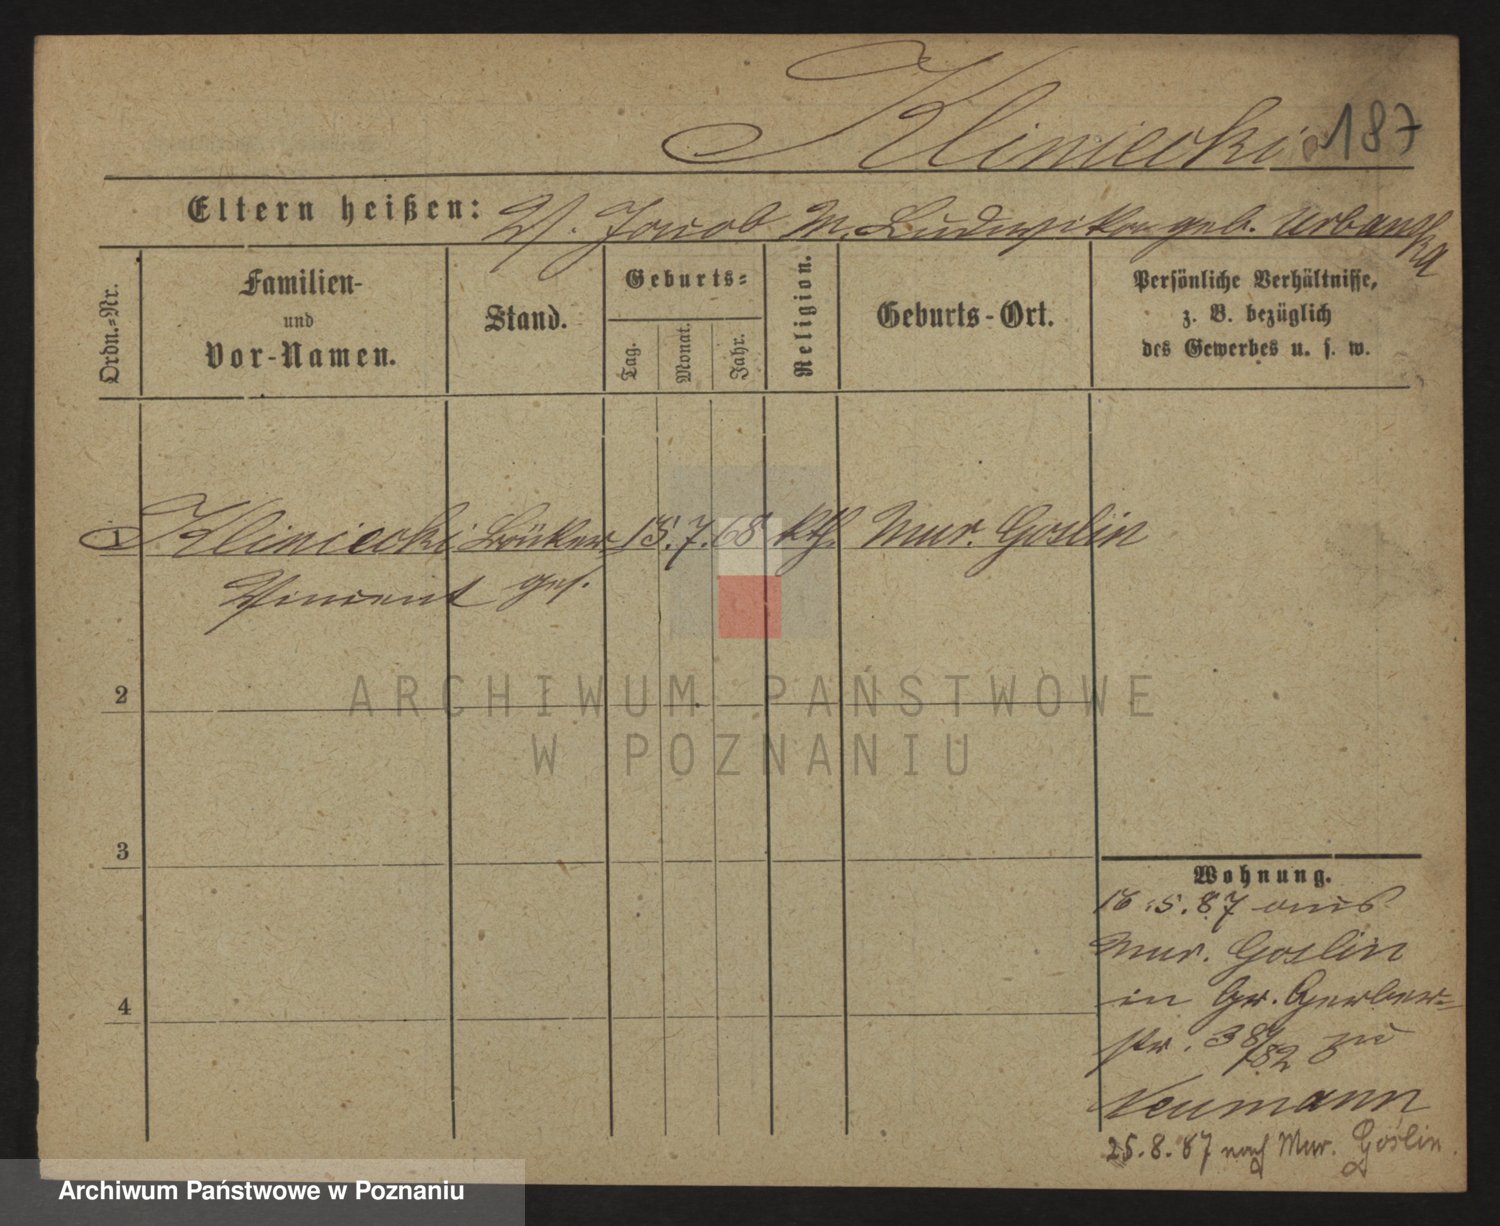 Kliniecki 187
Eltern heißen: V. Jacob M. Ludwika geb. Urbanska
Ordn.-Nr.
Familien-
und
Vor-Namen.
Stand.
Geburts-
Tag.
Monat.
Jahr.
Religion.
Geburts-Ort.
Persönliche Verhältnisse,
z. B. bezüglich
des Gewerbes u. s. w.
1 Kliniecki Bäcker 15. 7. 68 kth. Mur. Goslin
Vincent ges.
2
3
4
Wohnung.
18.5.87 aus
Mur. Goslin
in Gr. Gerber-
str. 38/ zu
Neumann
25.8.87 nach Mur. Goslin.
ARCHIWUM PAŃSTWOWE
W POZNANIU
Archiwum Państwowe w Poznaniu